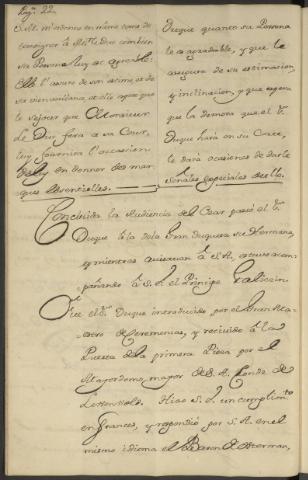 Pag. 22.
S. M. m'ordonne en même tems de
temoigner à Msr. le Duc combien
sa Personne luy est agreable:
Elle l'assure de son estime, et de
sa bienveillance, et elle espere que
le sejour que Monsieur
le Duc fera a sa Cour,
luy fournira l'occasion
de luy en donner des mar-
ques essentielles.
Duque quanto su Persona
le es agradable, y que le
asegura de su estimacion,
e inclinacion, y que espera
que la demora que el Sr.
Duque hará en su Corte,
le dará ocasiones de darle
señales especiales de ello.
Concluida la Audiencia del Czar pasó el Sr.
Duque à la de la Gran Duquesa su Hermana,
y mientras quisieron à S. A. estuvo acom-
pañando à S. E. el Principe Galiczin
Fue el Sr. Duque introducido por el Gran Ma-
estro de Ceremonias, y recivido à la
Puerta de la primera Pieza por el
Mayordomo mayor de S. A. Conde de
Hizo S. E. un cumplimto.
en frances, y respondió por S. A. en el
mismo idioma el Baron de Osterman,